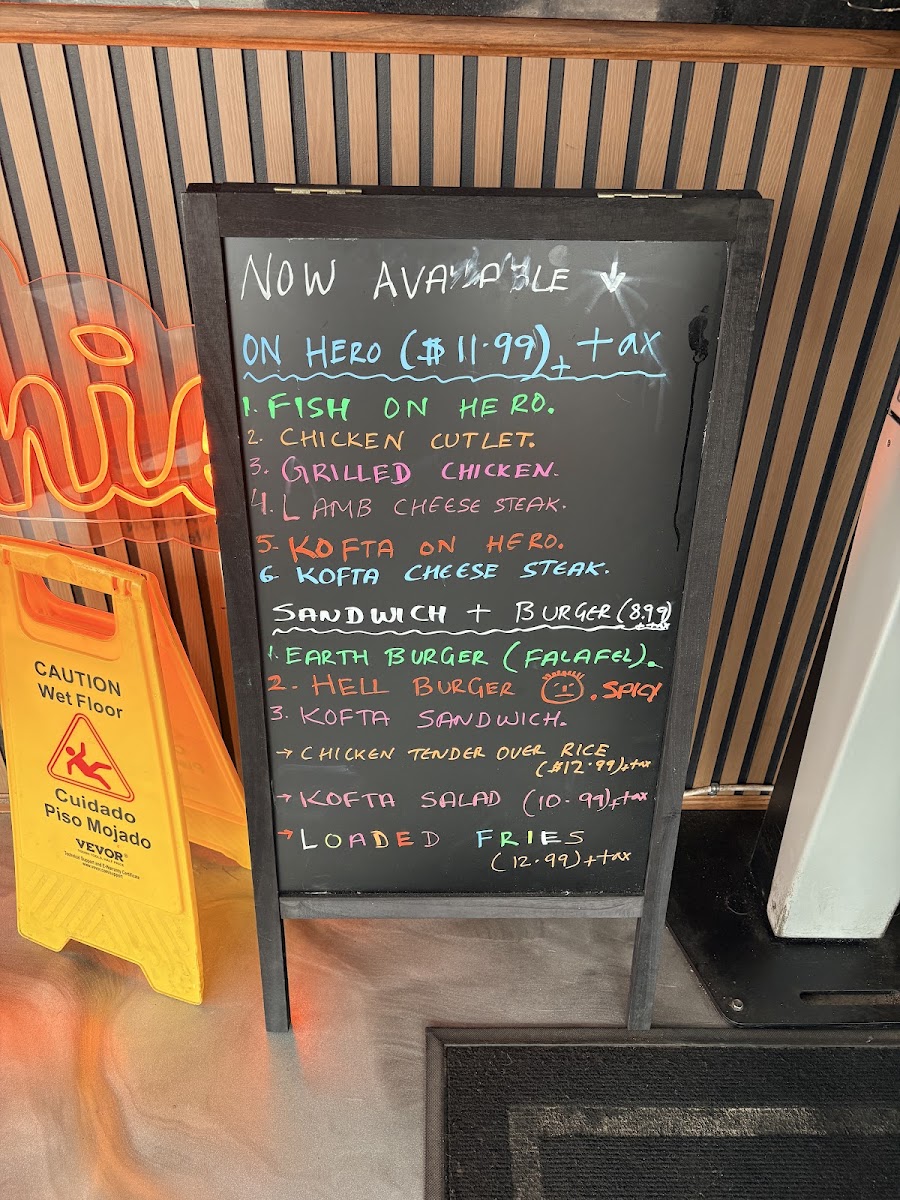 NOW AVAILABLE ↓
ON HERO ($11.99)++tax
1. FISH ON HERO.
2. CHICKEN CUTLET.
3. GRILLED CHICKEN.
4. LAMB CHEESE STEAK.
5. KOFTA ON HERO.
6. KOFTA CHEESE STEAK.
SANDWICH + BURGER (8.99)
++tax
1. EARTH BURGER (FALAFEL).
2. HELL BURGER . SPICY
3. KOFTA SANDWICH.
→ CHICKEN TENDER OVER RICE
($12.99)++tax
→ KOFTA SALAD (10.99)++tax
→ LOADED FRIES
(12.99)++tax
CAUTION
Wet Floor
Cuidado
Piso Mojado
VEVOR